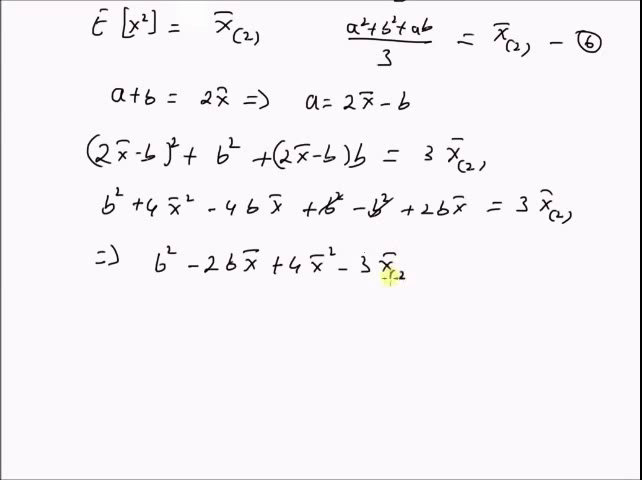 E[x²] = x̄₍₂₎   (a²+b²+ab)/3 = x̄₍₂₎ - ⑥
a+b = 2x̄ => a = 2x̄ - b
(2x̄-b)² + b² + (2x̄-b)b = 3 x̄₍₂₎
b² + 4x̄² - 4bx̄ + b² - b² + 2bx̄ = 3 x̄₍₂₎
=> b² - 2bx̄ + 4x̄² - 3 x̄₍₂